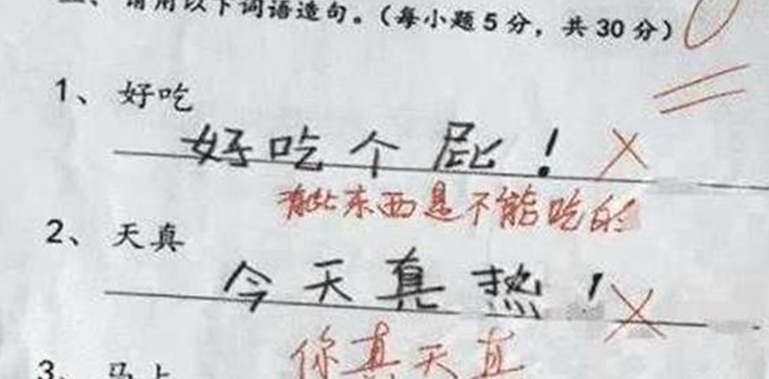 二、请用以下词语造句。(每小题5分，共30分)
1、好吃
好吃个屁！
有些东西是不能吃的
2、天真
今天真热！
你真天真
3、马上